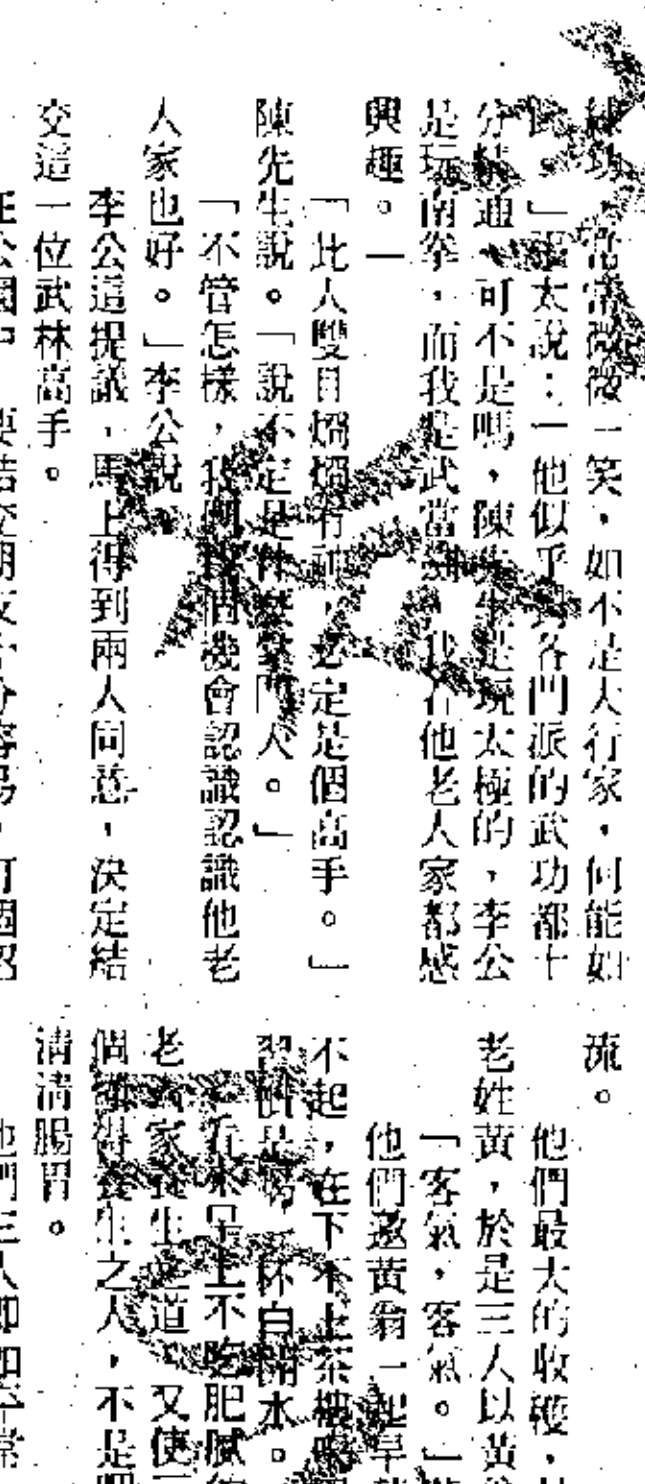 練功，常常微微一笑，如不是大行家，何能如
此。」張太說：「他似乎對各門派的武功都十
分精通，可不是嗎，陳先生是玩太極的，李公
是玩南拳，而我是武當派，我看他老人家都感
興趣。」
「此人雙目炯炯有神，必定是個高手。」
陳先生說。「說不定是什麼掌門人。」
「不管怎樣，我們找個機會認識認識他老
人家也好。」李公說。
李公這提議，馬上得到兩人同意，決定結
交這一位武林高手。
流。
他們最大的收穫，
老姓黃，於是三人以黃
「客氣，客氣。」
他們邀黃翁一起早
不起，在下不上茶樓
習慣是喝一杯白開水。
老人家養生之道，又使
個懂得養生之人，不是
清清腸胃。